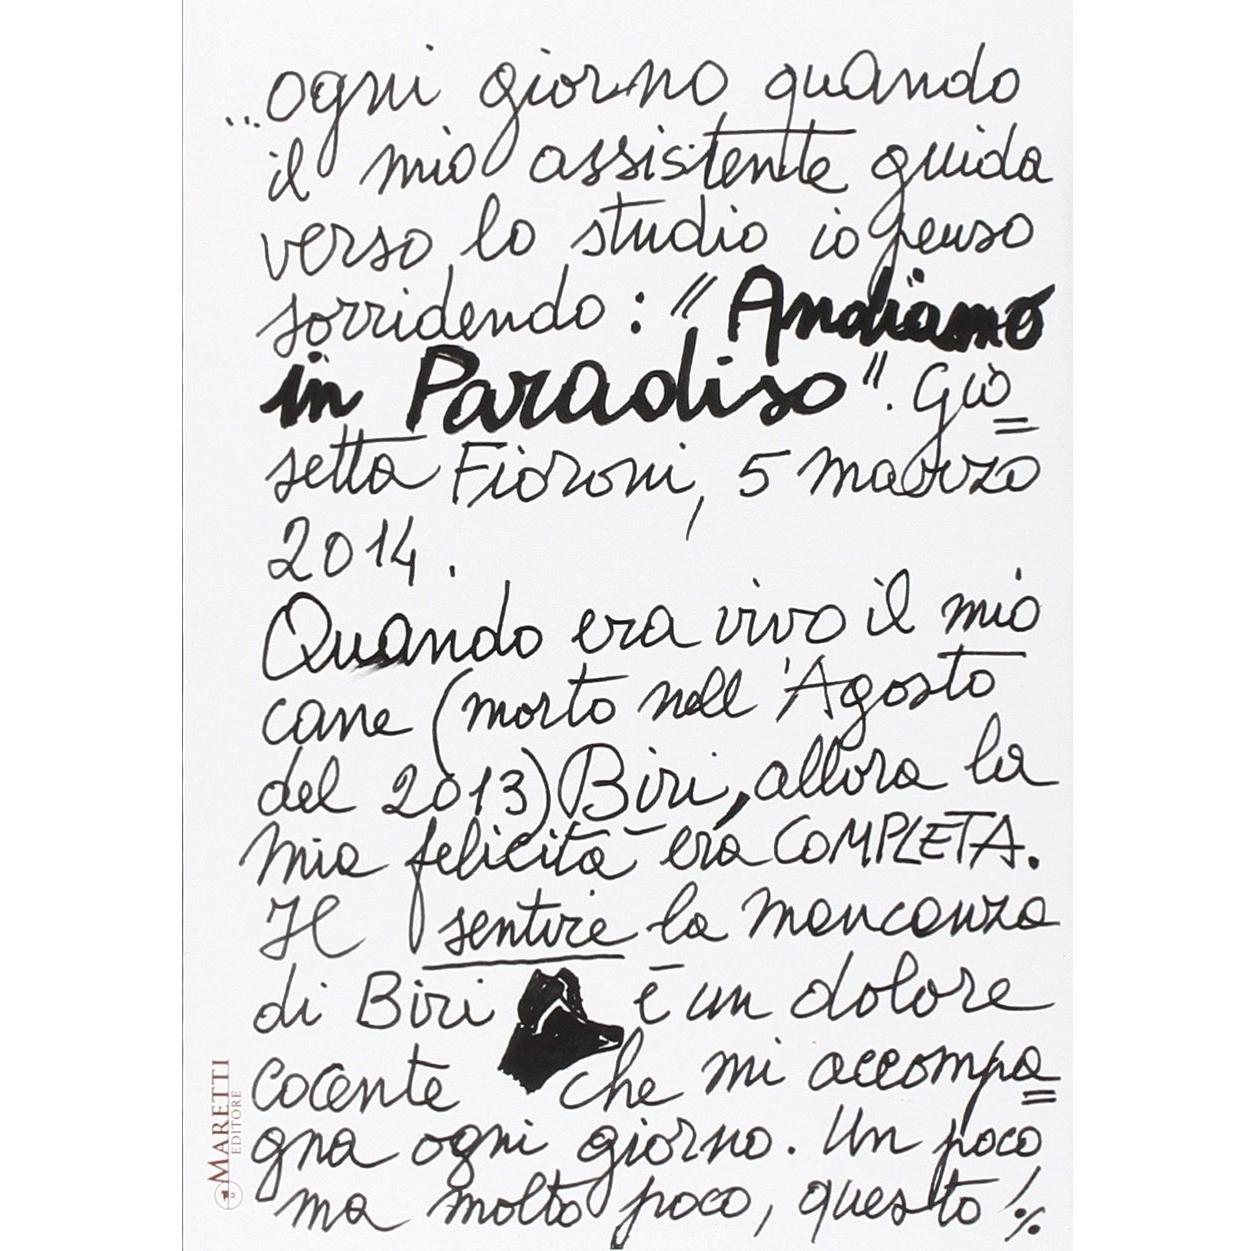 ...ogni giorno quando
il mio assistente guida
verso lo studio io penso
sorridendo: "Andiamo
in Paradiso". Giò=
setta Fioroni, 5 marzo
2014.
Quando era vivo il mio
cane (morto nell'Agosto
del 2013) Biri, allora la
mia felicità era COMPLETA.
Il sentire la mancanza
di Biri è un dolore
cocente che mi accompa=
gna ogni giorno. Un poco
ma molto poco, questo ./.
MARETTI
EDITORE